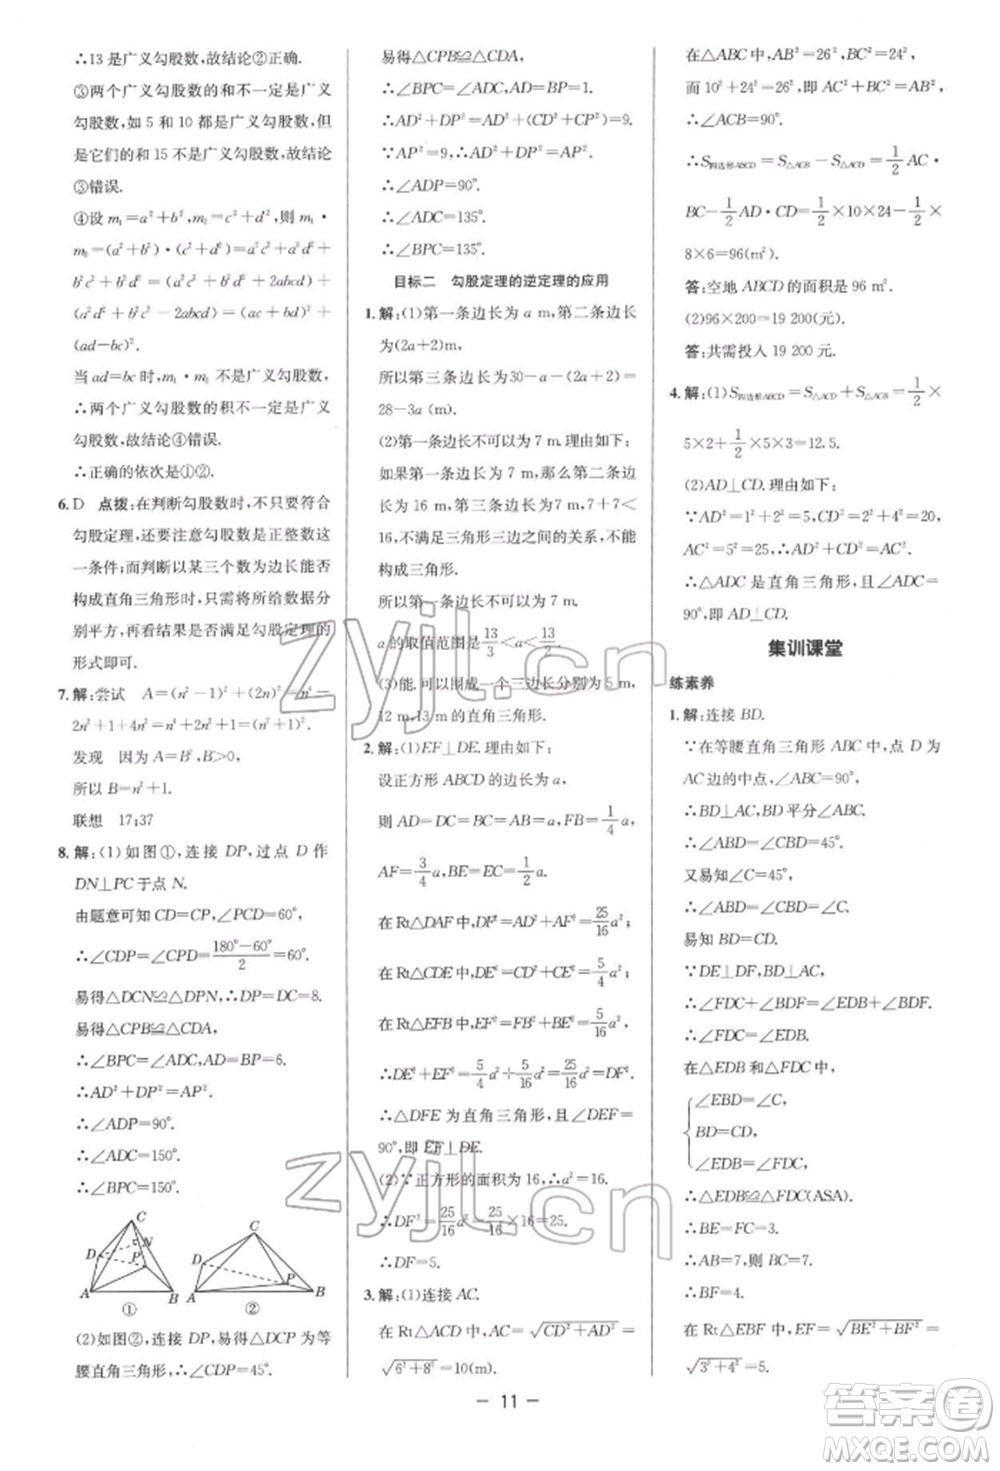 ∴13是广义勾股数,故结论②正确.
③两个广义勾股数的和不一定是广义
勾股数,如5和10都是广义勾股数,
但是它们的和15不是广义勾股数,故结论
③错误.
④设 m₁=a²+b², m₂=c²+d²,则 m₁·
m₂=(a²+b²)·(c²+d²)=a²c²+a²d²+
b²c²+b²d²=(a²c²+b²d²+2abcd)+
(a²d²+b²c²-2abcd)=(ac+bd)²+
(ad-bc)².
当ad=bc时,m₁·m₂不是广义勾股数,
∴两个广义勾股数的积不一定是广义
勾股数,故结论④错误.
∴正确的依次是①②.
6.D 点拨:在判断勾股数时,不只要符合
勾股定理,还要注意勾股数是正整数这
一条件;而判断以某三个数为边长能否
构成直角三角形时,只需将所给数据分
别平方,再看结果是否满足勾股定理的
形式即可.
7.解:尝试 A=(n²-1)²+(2n)²=n⁴-
2n²+1+4n²=n⁴+2n²+1=(n²+1)².
发现 因为A=B²,B>0,
所以B=n²+1.
联想 17;37
8.解:(1)如图①,连接DP,过点D作
DN⊥PC于点N.
由题意可知CD=CP,∠PCD=60°,
∴∠CDP=∠CPD=(180°-60°)/2=60°.
易得△DCN≌△DPN,∴DP=DC=8.
易得△CPB≌△CDA,
∴∠BPC=∠ADC,AD=BP=6.
∴AD²+DP²=AP².
∴∠ADP=90°.
∴∠ADC=150°.
∴∠BPC=150°.
C
D
N
P
A
B
①
C
D
P
A
B
②
(2)如图②,连接DP,易得△DCP为等
腰直角三角形,∴∠CDP=45°.
易得△CPB≌△CDA,
∴∠BPC=∠ADC,AD=BP=1.
∴AD²+DP²=1+(CD²+CP²)=9.
∵AP²=9,∴AP²=AD²+DP².
∴∠ADP=90°.
∴∠ADC=135°.
∴∠BPC=135°.
目标二 勾股定理的逆定理的应用
1.解:(1)第一条边长为a m,第二条边长
为(2a+2)m,
所以第三条边长为30-a-(2a+2)=
28-3a (m).
(2)第一条边长不可以为7 m.理由如下:
如果第一条边长为7 m,那么第二条边
长为16 m,第三条边长为7 m,7+7<
16,不满足三角形三边之间的关系,不能
构成三角形.
所以第一条边长不可以为7 m.
a的取值范围是13/3<a<13/2.
(3)能.可以围成一个三边长是5 m,
12 m,13 m的直角三角形.
2.解:(1)EF⊥DE.理由如下:
设正方形ABCD的边长为a,
则AD=DC=BC=AB=a,FB=1/4a,
AF=3/4a,BE=EC=1/2a.
在Rt△DAF中,DF²=AD²+AF²=25/16a²;
在Rt△CDE中,DE²=CD²+CE²=5/4a²;
在Rt△EFB中,EF²=FB²+BE²=5/16a².
∴DE²+EF²=5/4a²+5/16a²=25/16a²=DF².
∴△DFE为直角三角形,且∠DEF=
90°,即EF⊥DE.
(2)∵正方形的面积为16,∴a²=16.
∴DF²=25/16a²=25/16×16=25.
∴DF=5.
3.解:(1)连接AC.
在Rt△ACD中,AC=√(CD²+AD²)=
√(6²+8²)=10(m).
在△ABC中,AB²=26²,BC²=24²,
而10²+24²=26²,即AC²+BC²=AB²,
∴∠ACB=90°.
∴S四边形ABCD=S△ABC-S△ACD=1/2AC·
BC-1/2AD·CD=1/2×10×24-1/2×
8×6=96(m²).
答:空地ABCD的面积为96 m².
(2)96×200=19 200(元).
答:共需投入19 200元.
4.解:(1)S四边形ABCD=S△ACD+S△ACB=1/2×
5×2+1/2×5×3=12.5.
(2)AD⊥CD.理由如下:
∵AD²=1²+2²=5,CD²=2²+4²=20,
AC²=5²=25,∴AD²+CD²=AC².
∴△ADC是直角三角形,且∠ADC=
90°,即AD⊥CD.
集训课堂
练素养
1.解:连接BD.
∵在等腰直角三角形ABC中,点D为
AC边的中点,∠ABC=90°,
∴BD⊥AC,BD平分∠ABC.
∴∠ABD=∠CBD=45°.
又易知∠C=45°,
∴∠ABD=∠CBD=∠C.
易知BD=CD.
∵DE⊥DF,BD⊥AC,
∴∠FDC+∠BDF=∠EDB+∠BDF.
∴∠FDC=∠EDB.
在△EDB和△FDC中,
∠EBD=∠C,
BD=CD,
∠EDB=∠FDC,
∴△EDB≌△FDC(ASA).
∴BE=FC=3.
∴AB=7,则BC=7.
∴BF=4.
在Rt△EBF中,EF=√(BE²+BF²)=
√(3²+4²)=5.
- 11 -
zyjl.cn
zyjl.cn
答案圈
MXQE.COM